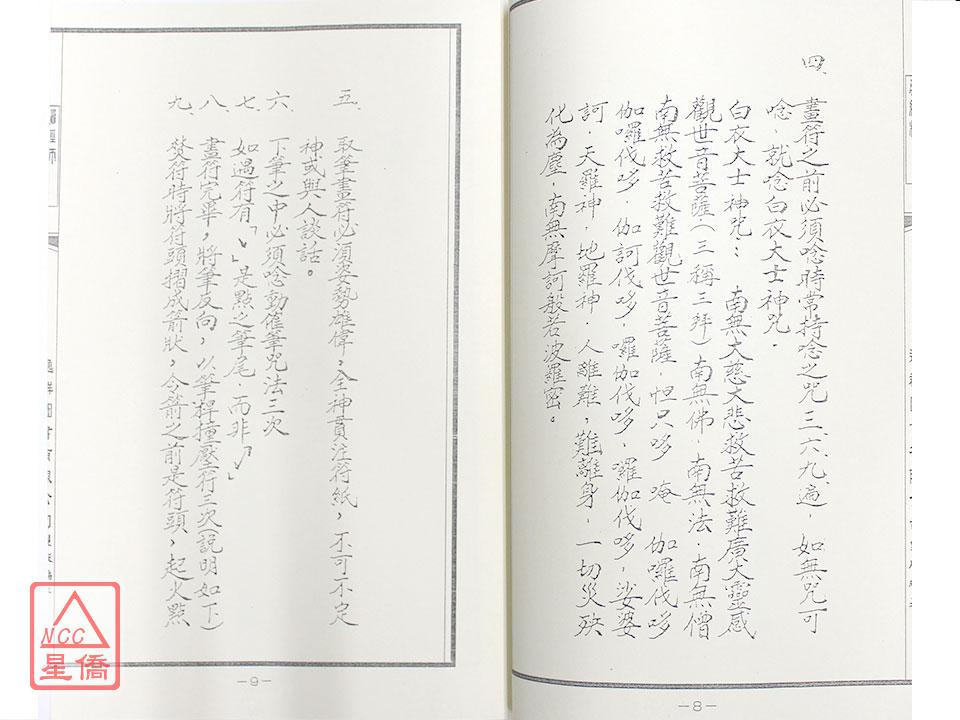 四、
畫符之前必須唸時常持唸之咒三、六、九遍，如無咒可
唸、就唸白衣大士神咒．
白衣大士神咒：南無大慈大悲救苦救難廣大靈感
觀世音菩薩．（三稱三拜）南無佛．南無法．南無僧
南無救苦救難觀世音菩薩．怛只哆 唵 伽囉伐哆
伽囉伐哆．伽訶伐哆．囉伽伐哆．羅伽伐哆．娑婆
訶．天羅神．地羅神．人離難，難離身，一切災殃
化為塵，南無摩訶般若波羅密。
-8-
五、
取筆畫符必須姿勢雄偉，全神貫注符紙，不可不定
神或與人談話。
六、
下筆之中必須唸動催筆咒法三次
七、
如遇符有「
」是點之筆尾．而非「
」
八、
畫符完畢，將筆反向，以筆桿撞壓符三次（說明如下）
九、
焚符時將符頭摺成箭狀，令箭之前是符頭，起火點
-9-
NCC
星僑